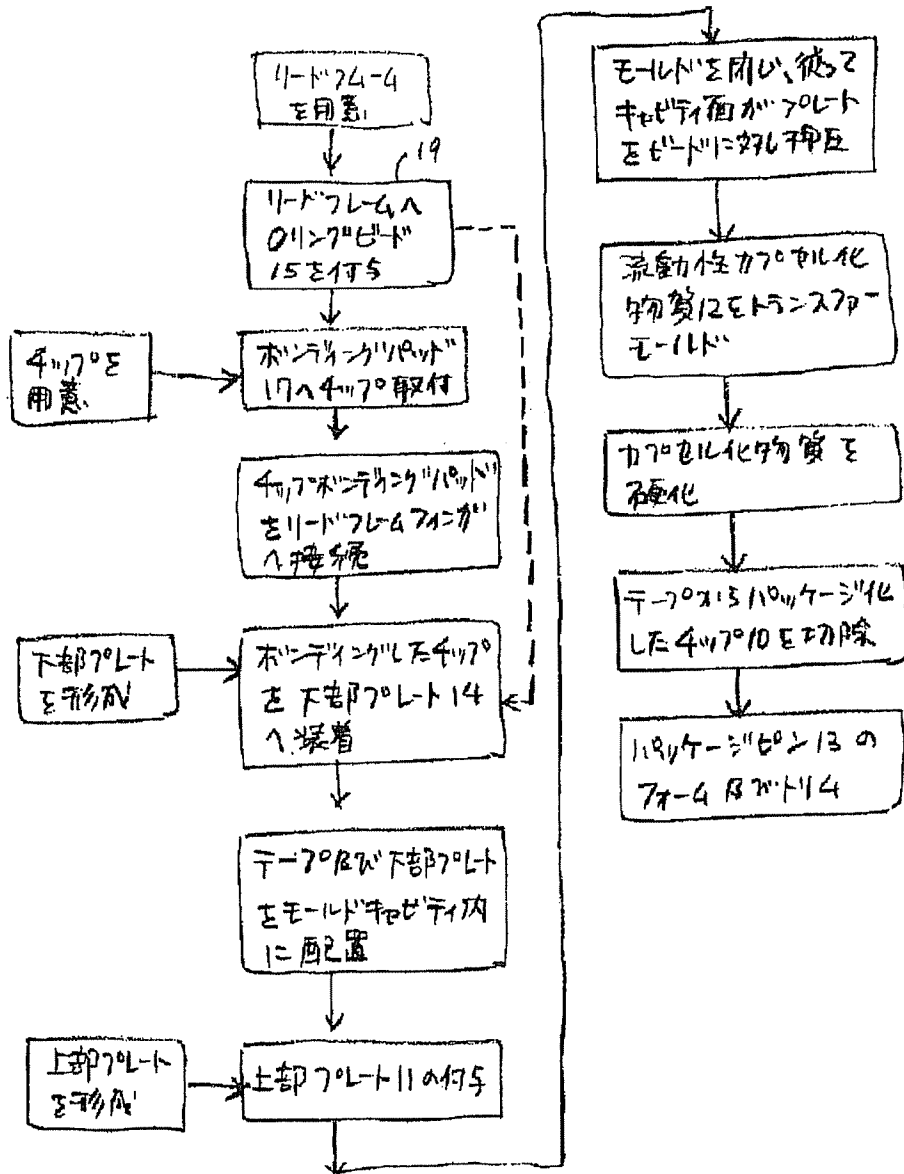 リードフレーム
を用意
19
リードフレームへ
Oリングビード
15を付与
チップを
用意
ボンディングパッド
17へチップ取付
チップボンディングパッド
をリードフレームフィンガ
へ接続
下部プレート
を形成
ボンディングしたチップ
を下部プレート14
へ装着
テープ及び下部プレート
をモールドキャビティ内
に配置
上部プレート
を形成
上部プレート11の付与
モールドを閉じ、従って
キャビティ面がプレート
をビードに対し押圧
流動性カプセル化
物質12をトランスファー
モールド
カプセル化物質を
硬化
テープからパッケージ化
したチップ10を切除
パッケージピン13の
フォーム及びトリム